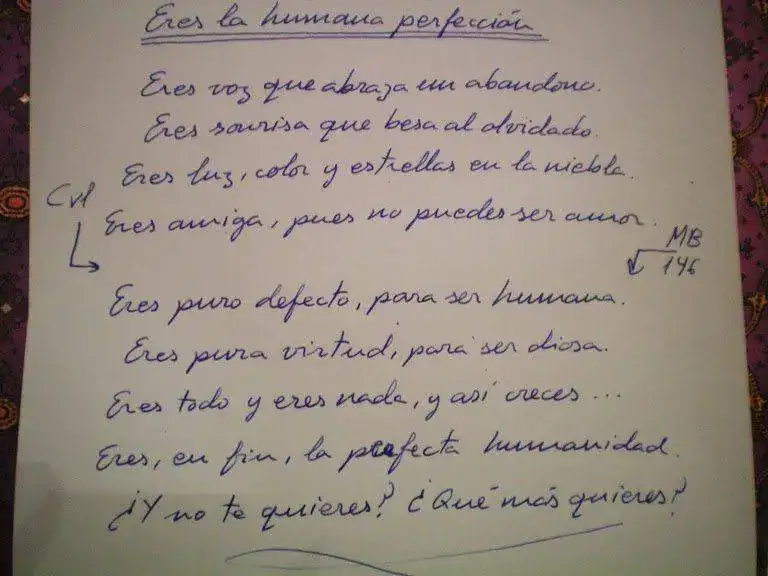 Eres la humana perfección
Eres voz que abraza un abandono.
Eres sonrisa que besa al olvidado.
Eres luz, color y estrellas en la niebla.
Eres amiga, pues no puedes ser amor.
MB
146
Eres puro defecto, para ser humana.
Eres pura virtud, para ser diosa.
Eres todo y eres nada, y así creces ...
Eres, en fin, la perfecta humanidad.
¿Y no te quieres? ¿Qué más quieres?